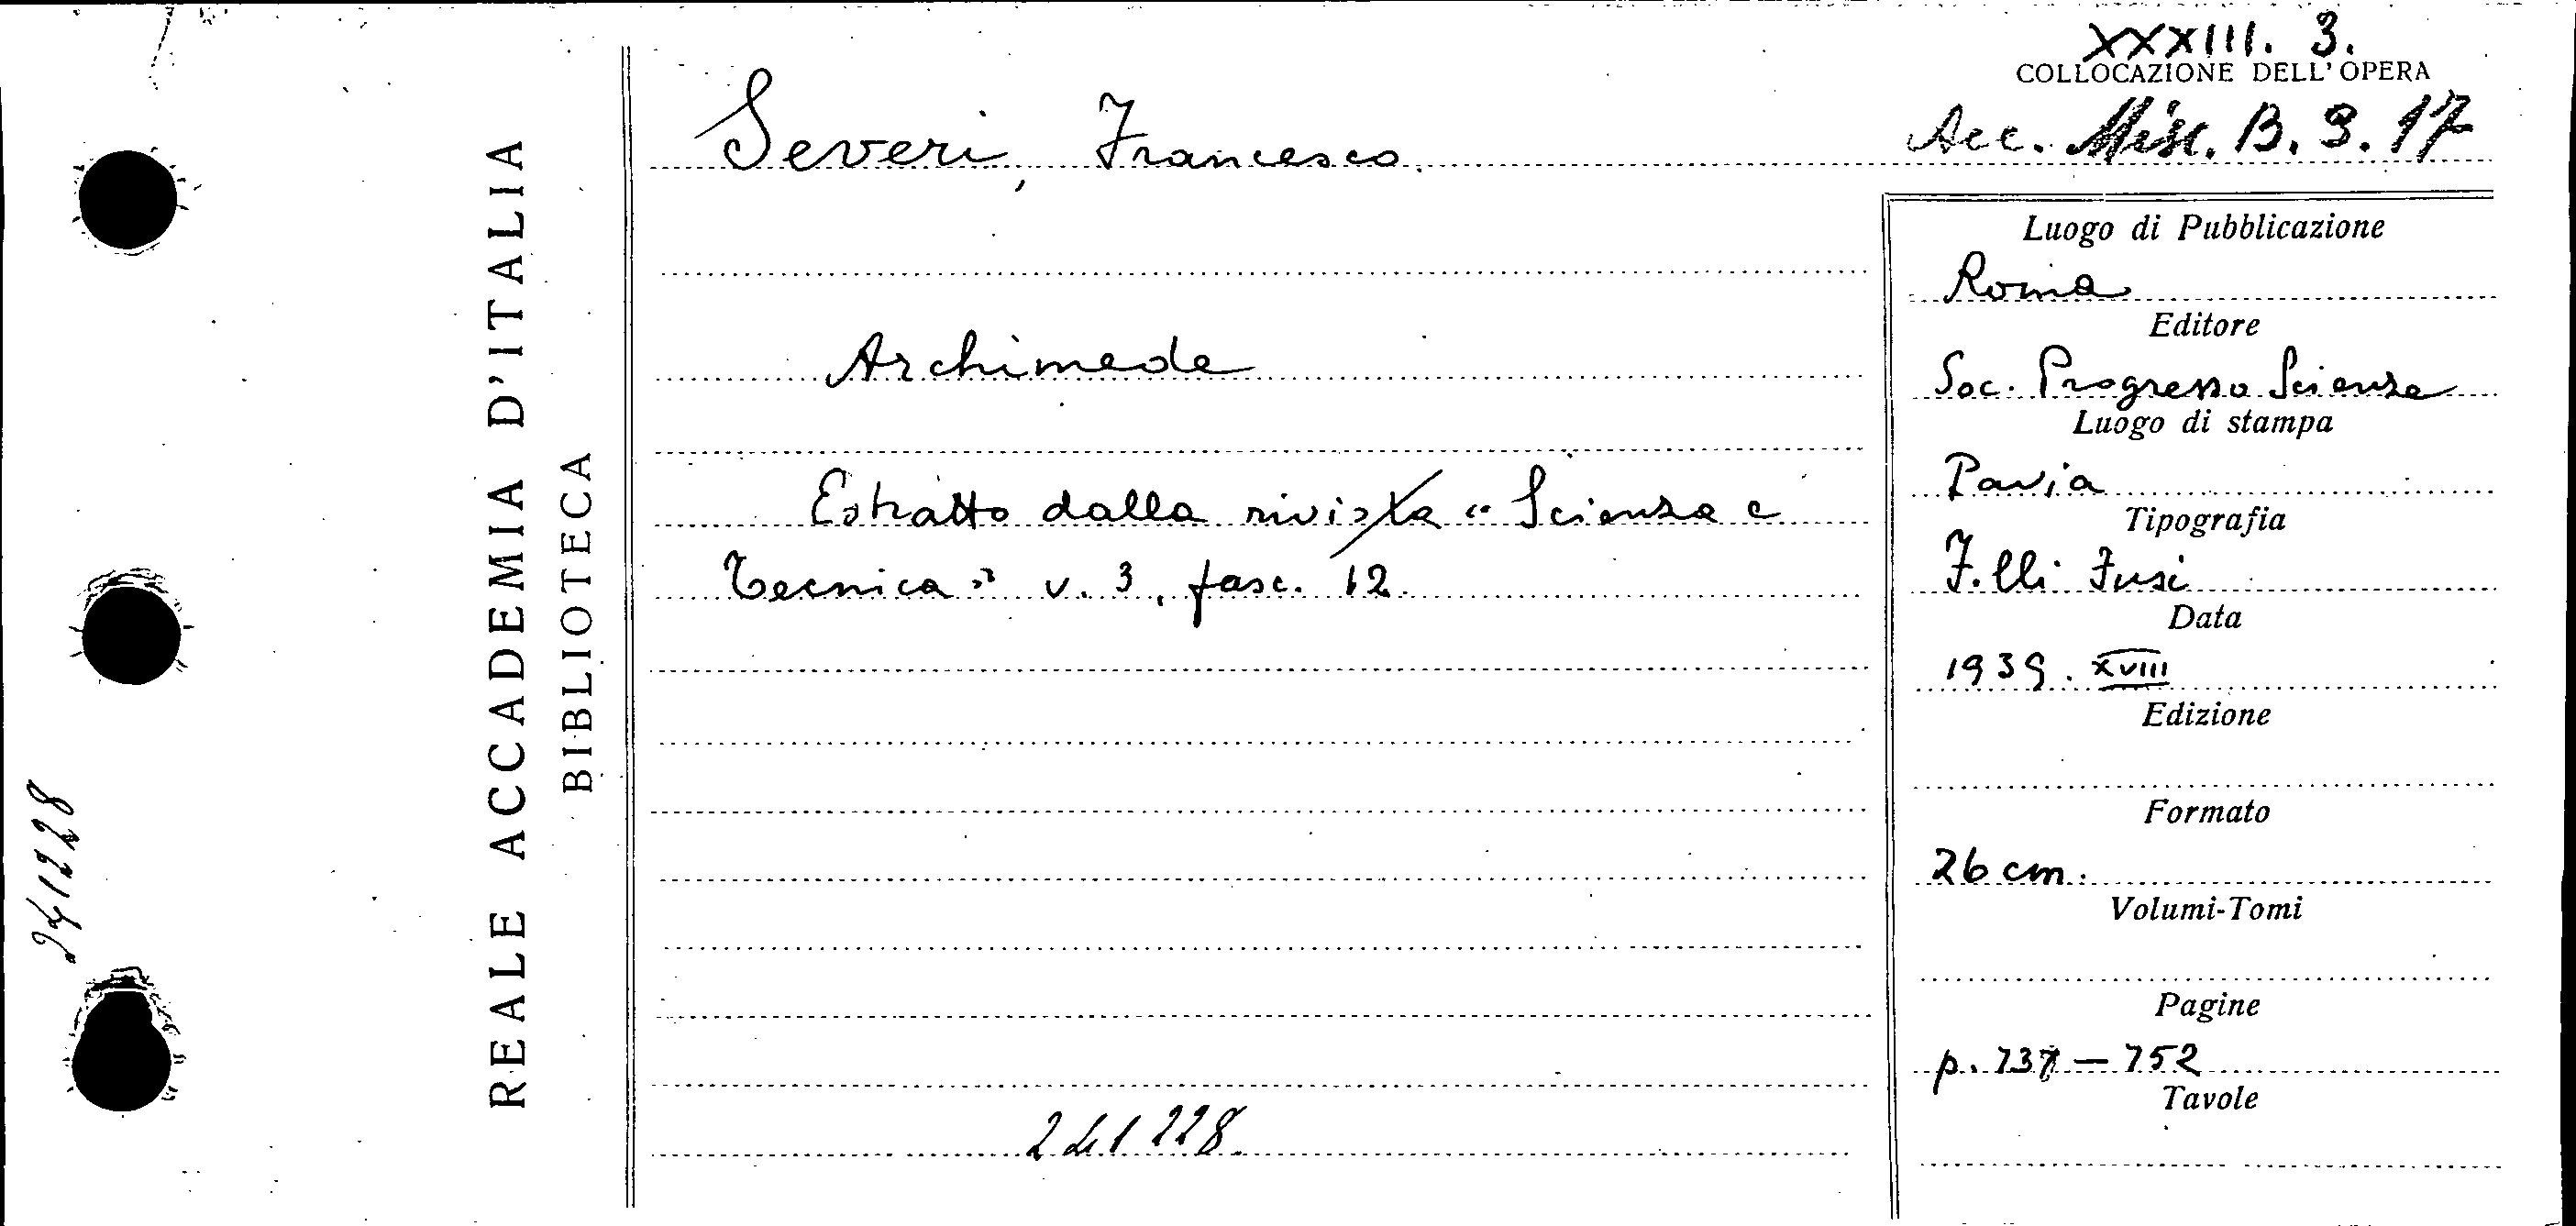 XXXIII. 3.
COLLOCAZIONE DELL'OPERA
Acc. Misc. B. 3. 17
Severi, Francesco.
Archimede
Estratto dalla rivista "Scienza e
Tecnica" v. 3, fasc. 12.
241228
Luogo di Pubblicazione
Roma
Editore
Soc. Progresso Scienze
Luogo di stampa
Pavia
Tipografia
F.lli Fusi
Data
1939. XVIII
Edizione
Formato
26 cm.
Volumi-Tomi
Pagine
p. 737 — 752
Tavole
REALE ACCADEMIA D'ITALIA
BIBLIOTECA
241228